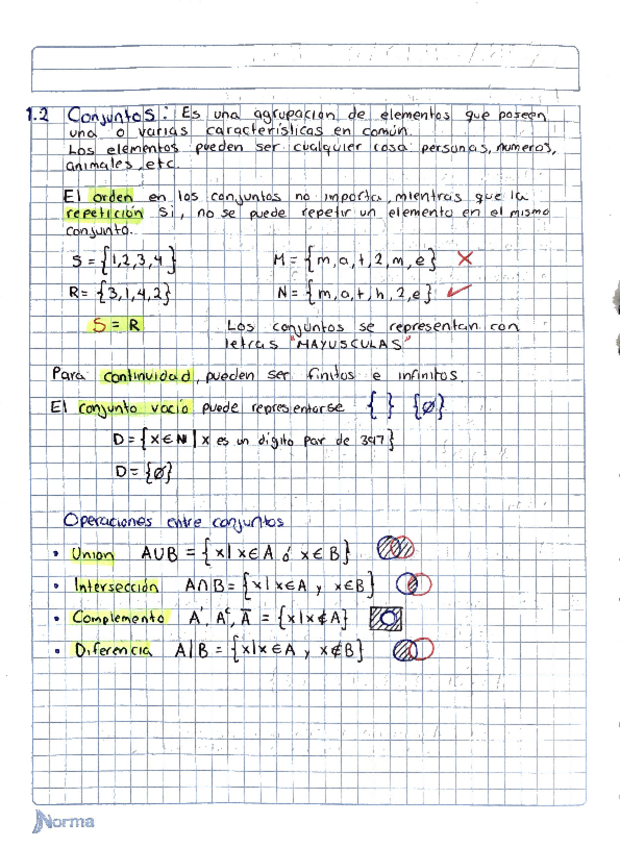 1.2 Conjuntos: Es una agrupación de elementos que poseen
una o varias características en común.
Los elementos pueden ser cualquier cosa personas, numeros,
animales, etc.
El orden en los conjuntos no importa, mientras que la
repetición si, no se puede repetir un elemento en el mismo
conjunto.
S = {1,2,3,4} M = {m,a,t,2,m,e} ✗
R = {3,1,4,2} N = {m,a,t,h,2,e} ✓
S = R Los conjuntos se representan con
letras "MAYUSCULAS"
Para continuidad, pueden ser finitos e infinitos.
El conjunto vacio puede representarse { } {∅}
D = {x∈N | x es un digito par de 397}
D = {∅}
Operaciones entre conjuntos
• Union A∪B = {x | x∈A ó x∈B}
• Intersección A∩B = {x | x∈A y x∈B}
• Complemento A', Aᶜ, A̅ = {x | x∉A}
• Diferencia A|B = {x | x∈A y x∉B}
Norma